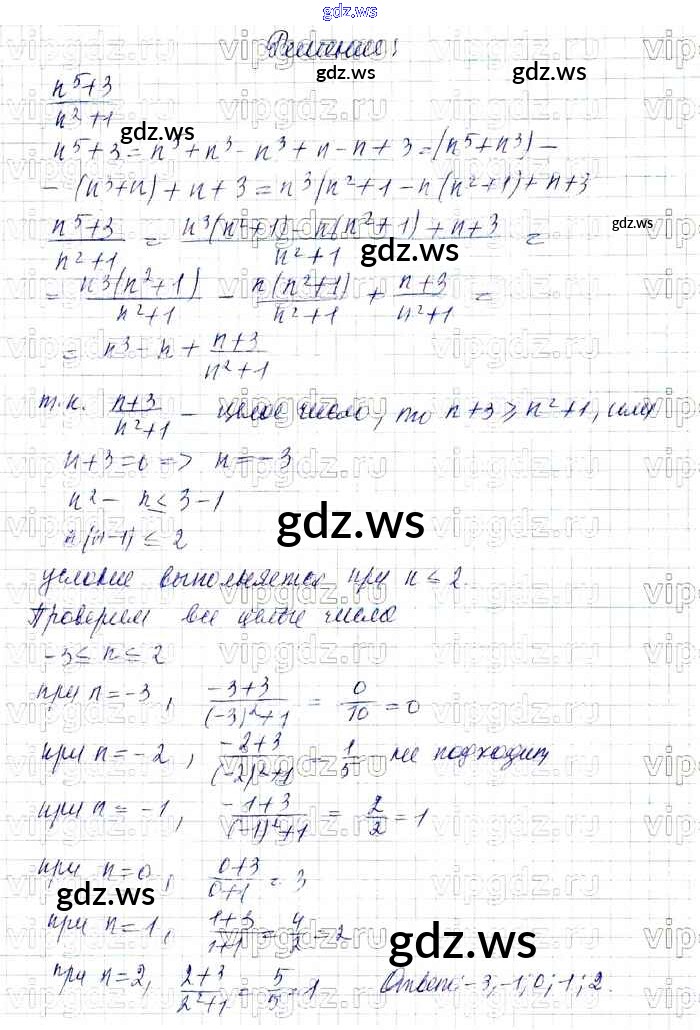 gdz.ws
Решение:
gdz.ws gdz.ws
n⁵+3 / n²+1
gdz.ws
n⁵+3 = n⁵+n³-n³+n-n+3 = (n⁵+n³) -
- (n³+n) + n+3 = n³(n²+1 - n(n²+1) + n+3
gdz.ws
n⁵+3 / n²+1 = n³(n²+1) - n(n²+1) + n+3 / n²+1 =
gdz.ws
= n³(n²+1) / n²+1 - n(n²+1) / n²+1 + n+3 / n²+1 =
= n³ - n + n+3 / n²+1
т.к. n+3 / n²+1 - целое число, то n+3 ⩾ n²+1, или
n+3=0 => n=-3
n² - n ≤ 3-1
gdz.ws
n(n-1) ≤ 2
условие выполняется при n ≤ 2.
Проверим все целые числа
-3 ≤ n ≤ 2
при n=-3, -3+3 / (-3)²+1 = 0 / 10 = 0
при n=-2, -2+3 / (-2)²+1 = 1 / 5 не подходит
при n=-1, -1+3 / (-1)²+1 = 2 / 2 = 1
при n=0, 0+3 / 0+1 = 3
gdz.ws
при n=1, 1+3 / 1+1 = 4 / 2 = 2
gdz.ws
при n=2, 2+3 / 2²+1 = 5 / 5 = 1 Ответ: -3; -1; 0; 1; 2.
gdz.ws
vipgdz.ru